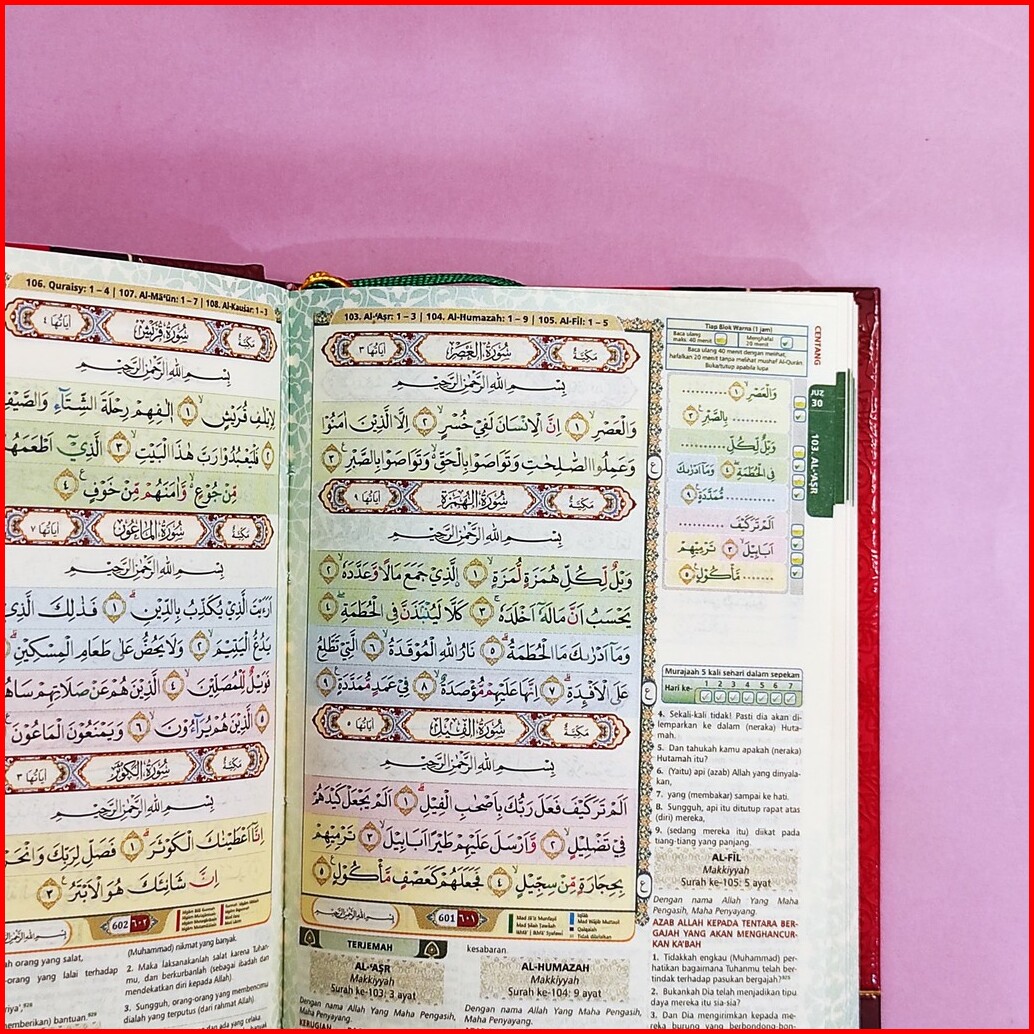 103. Al-'Aṣr: 1 – 3 | 104. Al-Humazah: 1 – 9 | 105. Al-Fīl: 1 – 5
مكية
سورة العصر
اياتها ٣
بِسْمِ اللّٰهِ الرَّحْمٰنِ الرَّحِيْمِ
وَالْعَصْرِۙ ١ اِنَّ الْاِنْسَانَ لَفِيْ خُسْرٍۙ ٢ اِلَّا الَّذِيْنَ اٰمَنُوْا
وَعَمِلُوا الصّٰلِحٰتِ وَتَوَاصَوْا بِالْحَقِّ ەۙ وَتَوَاصَوْا بِالصَّبْرِ ࣖ ٣
مكية
سورة الهمزة
اياتها ٩
بِسْمِ اللّٰهِ الرَّحْمٰنِ الرَّحِيْمِ
وَيْلٌ لِّكُلِّ هُمَزَةٍ لُّمَزَةٍۙ ١ اۨلَّذِيْ جَمَعَ مَالًا وَّعَدَّدَهٗۙ ٢
يَحْسَبُ اَنَّ مَالَهٗٓ اَخْلَدَهٗۚ ٣ كَلَّا لَيُنْۢبَذَنَّ فِى الْحُطَمَةِۖ ٤
وَمَآ اَدْرٰىكَ مَا الْحُطَمَةُۗ ٥ نَارُ اللّٰهِ الْمُوْقَدَةُۙ ٦ الَّتِيْ تَطَّلِعُ
عَلَى الْاَفْـِٕدَةِۗ ٧ اِنَّهَا عَلَيْهِمْ مُّؤْصَدَةٌۙ ٨ فِيْ عَمَدٍ مُّمَدَّدَةٍ ࣖ ٩
مكية
سورة الفيل
اياتها ٥
بِسْمِ اللّٰهِ الرَّحْمٰنِ الرَّحِيْمِ
اَلَمْ تَرَ كَيْفَ فَعَلَ رَبُّكَ بِاَصْحٰبِ الْفِيْلِۗ ١ اَلَمْ يَجْعَلْ كَيْدَهُمْ
فِيْ تَضْلِيْلٍۙ ٢ وَّاَرْسَلَ عَلَيْهِمْ طَيْرًا اَبَابِيْلَۙ ٣ تَرْمِيْهِمْ
بِحِجَارَةٍ مِّنْ سِجِّيْلٍۙ ٤ فَجَعَلَهُمْ كَعَصْفٍ مَّأْكُوْلٍ ࣖ ٥
601 ٦٠١
TERJEMAH
AL-'AṢR
Makkiyyah
Surah ke-103: 3 ayat
Dengan nama Allah Yang Maha Pengasih,
Maha Penyayang.
KERUGIAN
kesabaran.
AL-HUMAZAH
Makkiyyah
Surah ke-104: 9 ayat
Dengan nama Allah Yang Maha Pengasih,
Maha Penyayang.
Tiap Blok Warna (1 jam)
Baca ulang
maks. 40 menit
Menghafal
20 menit
Baca ulang 40 menit dengan melihat,
hafalkan 20 menit tanpa melihat mushaf Al-Qurän
Buka/tutup apabila lupa
CENTANG
وَالْعَصْرِۙ ١ ..........
.......... بِالصَّبْرِ ٣
وَيْلٌ لِّكُلِّ ..........
فِى الْحُطَمَةِۖ ٤ وَمَآ اَدْرٰىكَ
.......... مُّمَدَّدَةٍ ٩
اَلَمْ تَرَ كَيْفَ ..........
اَبَابِيْلَۙ ٣ تَرْمِيْهِمْ
.......... مَّأْكُوْلٍ ٥
JUZ
30
103. AL-'AṢR
Murajaah 5 kali sehari dalam sepekan
Hari ke- 1 2 3 4 5 6 7
4. Sekali-kali tidak! Pasti dia akan di-
lemparkan ke dalam (neraka) Huta-
mah.
5. Dan tahukah kamu apakah (neraka)
Hutamah itu?
6. (Yaitu) api (azab) Allah yang dinyala-
kan,
7. yang (membakar) sampai ke hati.
8. Sungguh, api itu ditutup rapat atas
(diri) mereka,
9. (sedang mereka itu) diikat pada
tiang-tiang yang panjang.
AL-FĪL
Makkiyyah
Surah ke-105: 5 ayat
Dengan nama Allah Yang Maha
Pengasih, Maha Penyayang.
AZAB ALLAH KEPADA TENTARA BER-
GAJAH YANG AKAN MENGHANCUR-
KAN KA'BAH
1. Tidakkah engkau (Muhammad) per-
hatikan bagaimana Tuhanmu telah ber-
tindak terhadap pasukan bergajah?
2. Bukankah Dia telah menjadikan tipu
daya mereka itu sia-sia?
3. Dan Dia mengirimkan kepada me-
reka burung yang berbondong-bon-
106. Quraisy: 1 – 4 | 107. Al-Mā'ūn: 1 – 7 | 108. Al-Kauṡar: 1 - 3
مكية
سورة قريش
اياتها ٤
بِسْمِ اللّٰهِ الرَّحْمٰنِ الرَّحِيْمِ
لِاِيْلٰفِ قُرَيْشٍۙ ١ اٖلٰفِهِمْ رِحْلَةَ الشِّتَاۤءِ وَالصَّيْفِ
٢ فَلْيَعْبُدُوْا رَبَّ هٰذَا الْبَيْتِۙ ٣ الَّذِيْٓ اَطْعَمَهُمْ
مِّنْ جُوْعٍ ەۙ وَّاٰمَنَهُمْ مِّنْ خَوْفٍ ࣖ ٤
مكية
سورة الماعون
اياتها ٧
بِسْمِ اللّٰهِ الرَّحْمٰنِ الرَّحِيْمِ
اَرَءَيْتَ الَّذِيْ يُكَذِّبُ بِالدِّيْنِۗ ١ فَذٰلِكَ الَّذِيْ
يَدُعُّ الْيَتِيْمَۙ ٢ وَلَا يَحُضُّ عَلٰى طَعَامِ الْمِسْكِيْنِۗ
فَوَيْلٌ لِّلْمُصَلِّيْنَۙ ٤ الَّذِيْنَ هُمْ عَنْ صَلَاتِهِمْ
٥ الَّذِيْنَ هُمْ يُرَاۤءُوْنَۙ ٦ وَيَمْنَعُوْنَ الْمَاعُوْنَ
مكية
سورة الكوثر
اياتها ٣
بِسْمِ اللّٰهِ الرَّحْمٰنِ الرَّحِيْمِ
اِنَّآ اَعْطَيْنٰكَ الْكَوْثَرَۗ ١ فَصَلِّ لِرَبِّكَ
اِنَّ شَانِئَكَ هُوَ الْاَبْتَرُ ࣖ ٣
602 ٦٠٢
orang yang salat,
orang yang lalai terhadap
memberikan) bantuan.
(Muhammad) nikmat yang banyak.
2. Maka laksanakanlah salat karena Tuhan-
mu, dan berkurbanlah (sebagai ibadah dan
mendekatkan diri kepada Allah).
3. Sungguh, orang-orang yang membencimu
dialah yang terputus (dari rahmat Allah).